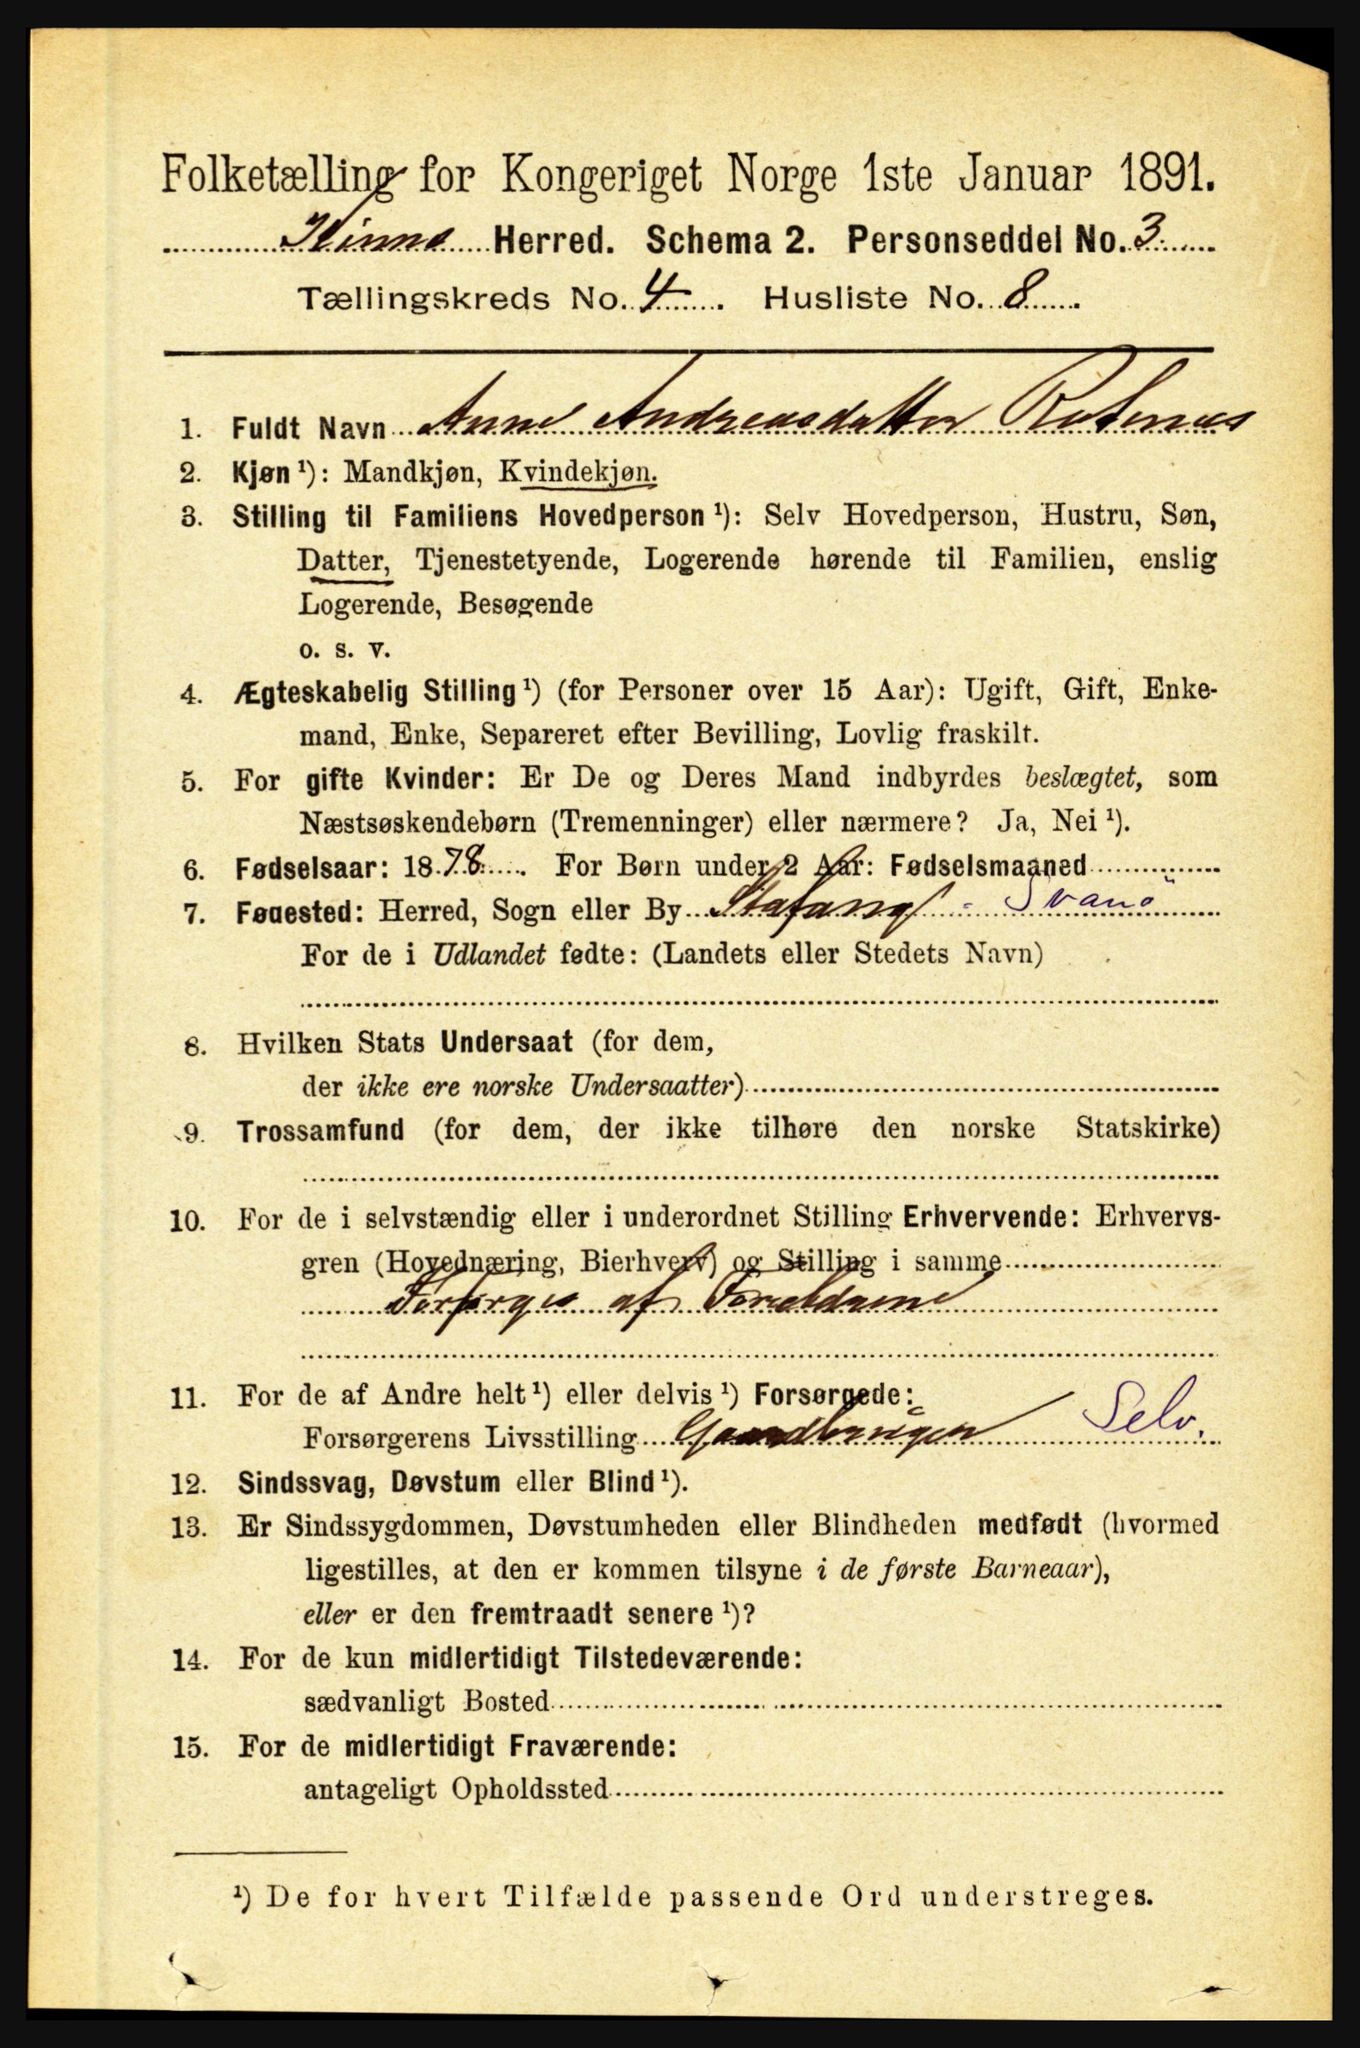 Folketælling for Kongeriget Norge 1ste Januar 1891.
Kinne Herred. Schema 2. Personseddel No. 3
Tællingskreds No. 4. Husliste No. 8.
1. Fuldt Navn Anne Andreasdatter Rotenæs
2. Kjøn ¹): Mandkjøn, Kvindekjøn.
3. Stilling til Familiens Hovedperson ¹): Selv Hovedperson, Hustru, Søn,
Datter, Tjenestetyende, Logerende hørende til Familien, enslig
Logerende, Besøgende
o. s. v.
4. Ægteskabelig Stilling ¹) (for Personer over 15 Aar): Ugift, Gift, Enke-
mand, Enke, Separeret efter Bevilling, Lovlig fraskilt.
5. For gifte Kvinder: Er De og Deres Mand indbyrdes beslægtet, som
Næstsøskendebørn (Tremenninger) eller nærmere? Ja, Nei ¹).
6. Fødselsaar: 1878. For Børn under 2 Aar: Fødselsmaaned
7. Fødested: Herred, Sogn eller By Stafang - Svanö
For de i Udlandet fødte: (Landets eller Stedets Navn)
8. Hvilken Stats Undersaat (for dem,
der ikke ere norske Undersaatter)
9. Trossamfund (for dem, der ikke tilhøre den norske Statskirke)
10. For de i selvstændig eller i underordnet Stilling Erhvervende: Erhvervs-
gren (Hovednæring, Bierhverv) og Stilling i samme
Forsørges af Forældrene
11. For de af Andre helt ¹) eller delvis ¹) Forsørgede:
Forsørgerens Livsstilling Gaardbruger Selv.
12. Sindssvag, Døvstum eller Blind ¹).
13. Er Sindssygdommen, Døvstumheden eller Blindheden medfødt (hvormed
ligestilles, at den er kommen tilsyne i de første Barneaar),
eller er den fremtraadt senere ¹)?
14. For de kun midlertidigt Tilstedeværende:
sædvanligt Bosted
15. For de midlertidigt Fraværende:
antageligt Opholdssted
¹) De for hvert Tilfælde passende Ord understreges.